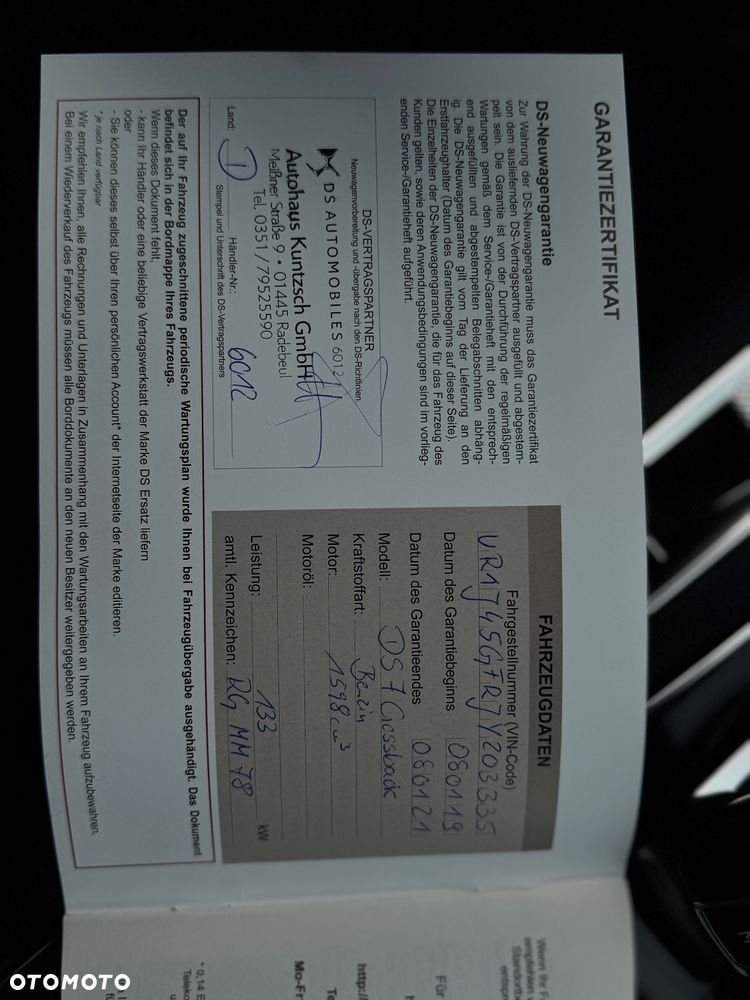 GARANTIEZERTIFIKAT
DS-Neuwagengarantie
Zur Wahrung der DS-Neuwagengarantie muss das Garantiezertifikat
von dem ausliefernden DS-Vertragspartner ausgefüllt und abgestem-
pelt sein. Die Garantie ist von der Durchführung der regelmäßigen
Wartungen gemäß dem Service-/Garantieheft mit den entsprech-
end ausgefüllten und abgestempelten Belegabschnitten abhäng-
ig. Die DS-Neuwagengarantie gilt vom Tag der Lieferung an den
Erstfahrzeughalter (Datum des Garantiebeginns auf dieser Seite).
Die Einzelheiten der DS-Neuwagengarantie, die für das Fahrzeug des
Kunden gelten, sowie deren Anwendungsbedingungen sind im vorlieg-
enden Service-/Garantieheft aufgeführt.
DS-VERTRAGSPARTNER
Neuwagenvorbereitung und -übergabe nach den DS-Richtlinien.
DS AUTOMOBILES 6012
Autohaus Kuntzsch GmbH
Meißner Straße 9 • 01445 Radebeul
Tel. 0351/79525590
Land: D Händler-Nr.: 6012
Stempel und Unterschrift des DS-Vertragspartners
FAHRZEUGDATEN
Fahrgestellnummer (VIN-Code)
VR1J45GFRJY203335
Datum des Garantiebeginns 080119
Datum des Garantieendes 080121
Modell: DS 7 Crossback
Kraftstoffart: Benzin
Motor: 1598 cm³
Motoröl:
Leistung: 133 kW
amtl. Kennzeichen: RG MM 78
Der auf Ihr Fahrzeug zugeschnittene periodische Wartungsplan wurde Ihnen bei Fahrzeugübergabe ausgehändigt. Das Dokument
befindet sich in der Bordmappe Ihres Fahrzeugs.
Wenn dieses Dokument fehlt,
- kann Ihr Händler oder eine beliebige Vertragswerkstatt der Marke DS Ersatz liefern
oder
- Sie können dieses selbst über Ihren persönlichen Account* der Internetseite der Marke editieren.
* je nach Land verfügbar
Wir empfehlen Ihnen, alle Rechnungen und Unterlagen in Zusammenhang mit den Wartungsarbeiten an Ihrem Fahrzeug aufzubewahren.
Bei einem Wiederverkauf des Fahrzeugs müssen alle Borddokumente an den neuen Besitzer weitergegeben werden.
Wenn Ihr
empfehlen
Standort
entspre
Für
http:/
Te
Mo-Fr
* 0,14 E
Teleko
OTOMOTO